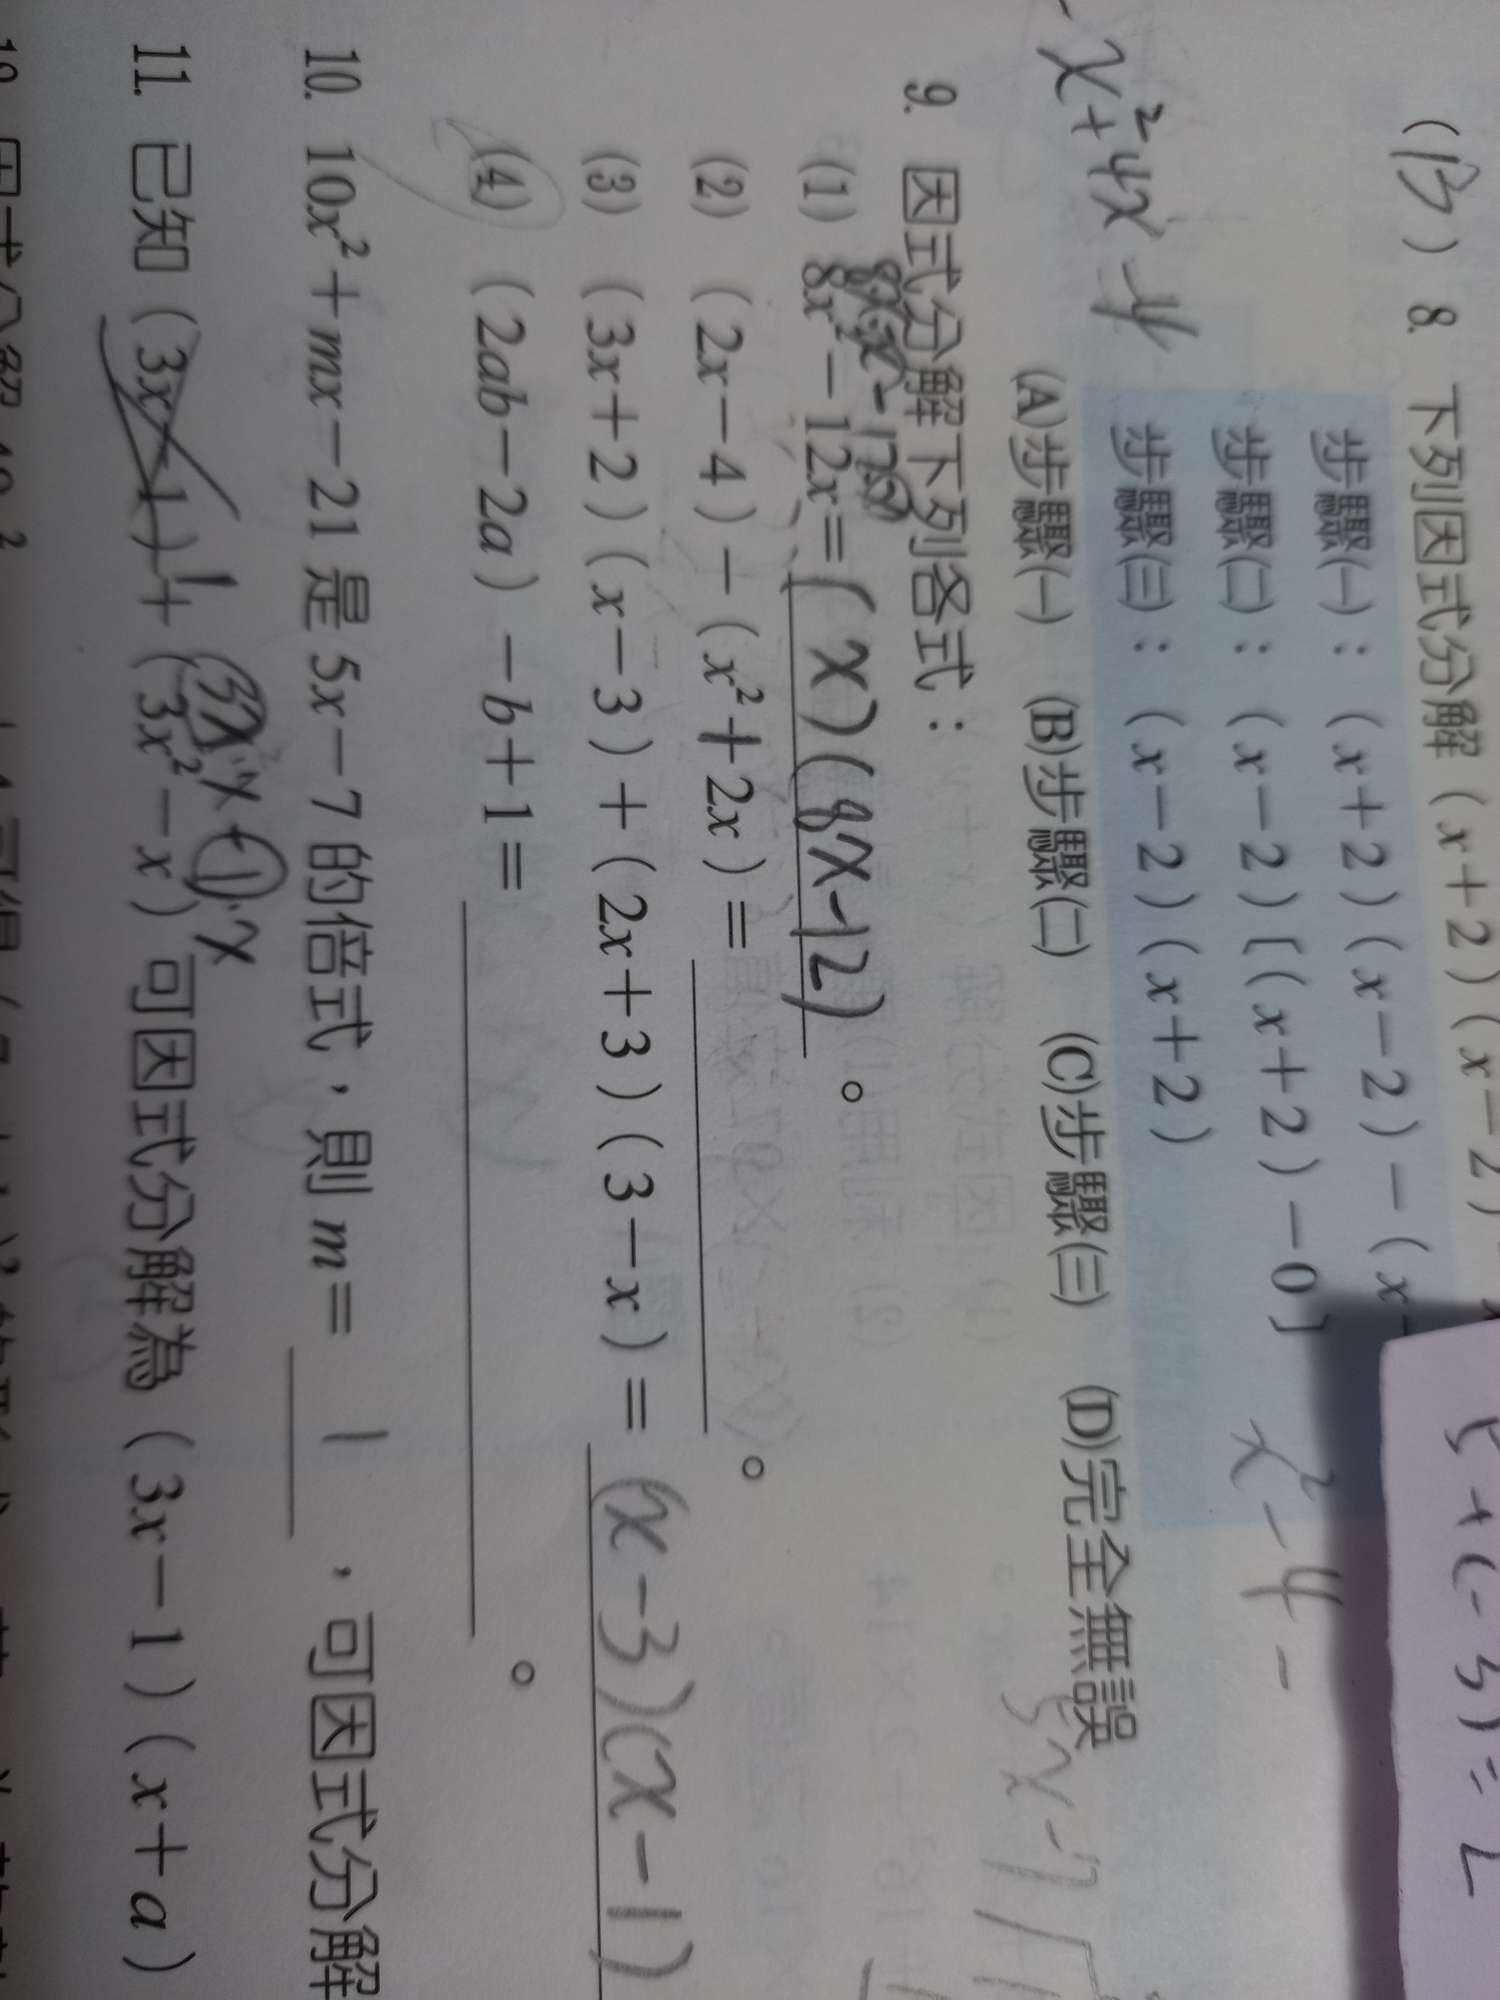 (B) 8. 下列因式分解(x+2)(x-2)
步驟㈠:(x+2)(x-2)-(x-
步驟㈡:(x-2)[(x+2)-0]
步驟㈢:(x-2)(x+2)
x²-4-
(A)步驟㈠ (B)步驟㈡ (C)步驟㈢ (D)完全無誤
-x²+4x-4
9. 因式分解下列各式:
(1) 8x²-12x=(x)(8x-12)。
(2) (2x-4)-(x²+2x)= 。
(3) (3x+2)(x-3)+(2x+3)(3-x)=(x-3)(x-1)
(4) (2ab-2a)-b+1= 。
10. 10x²+mx-21是5x-7的倍式,則m= 1 ,可因式分解
11. 已知(3x-1)+(3x²-x)可因式分解為(3x-1)(x+a)